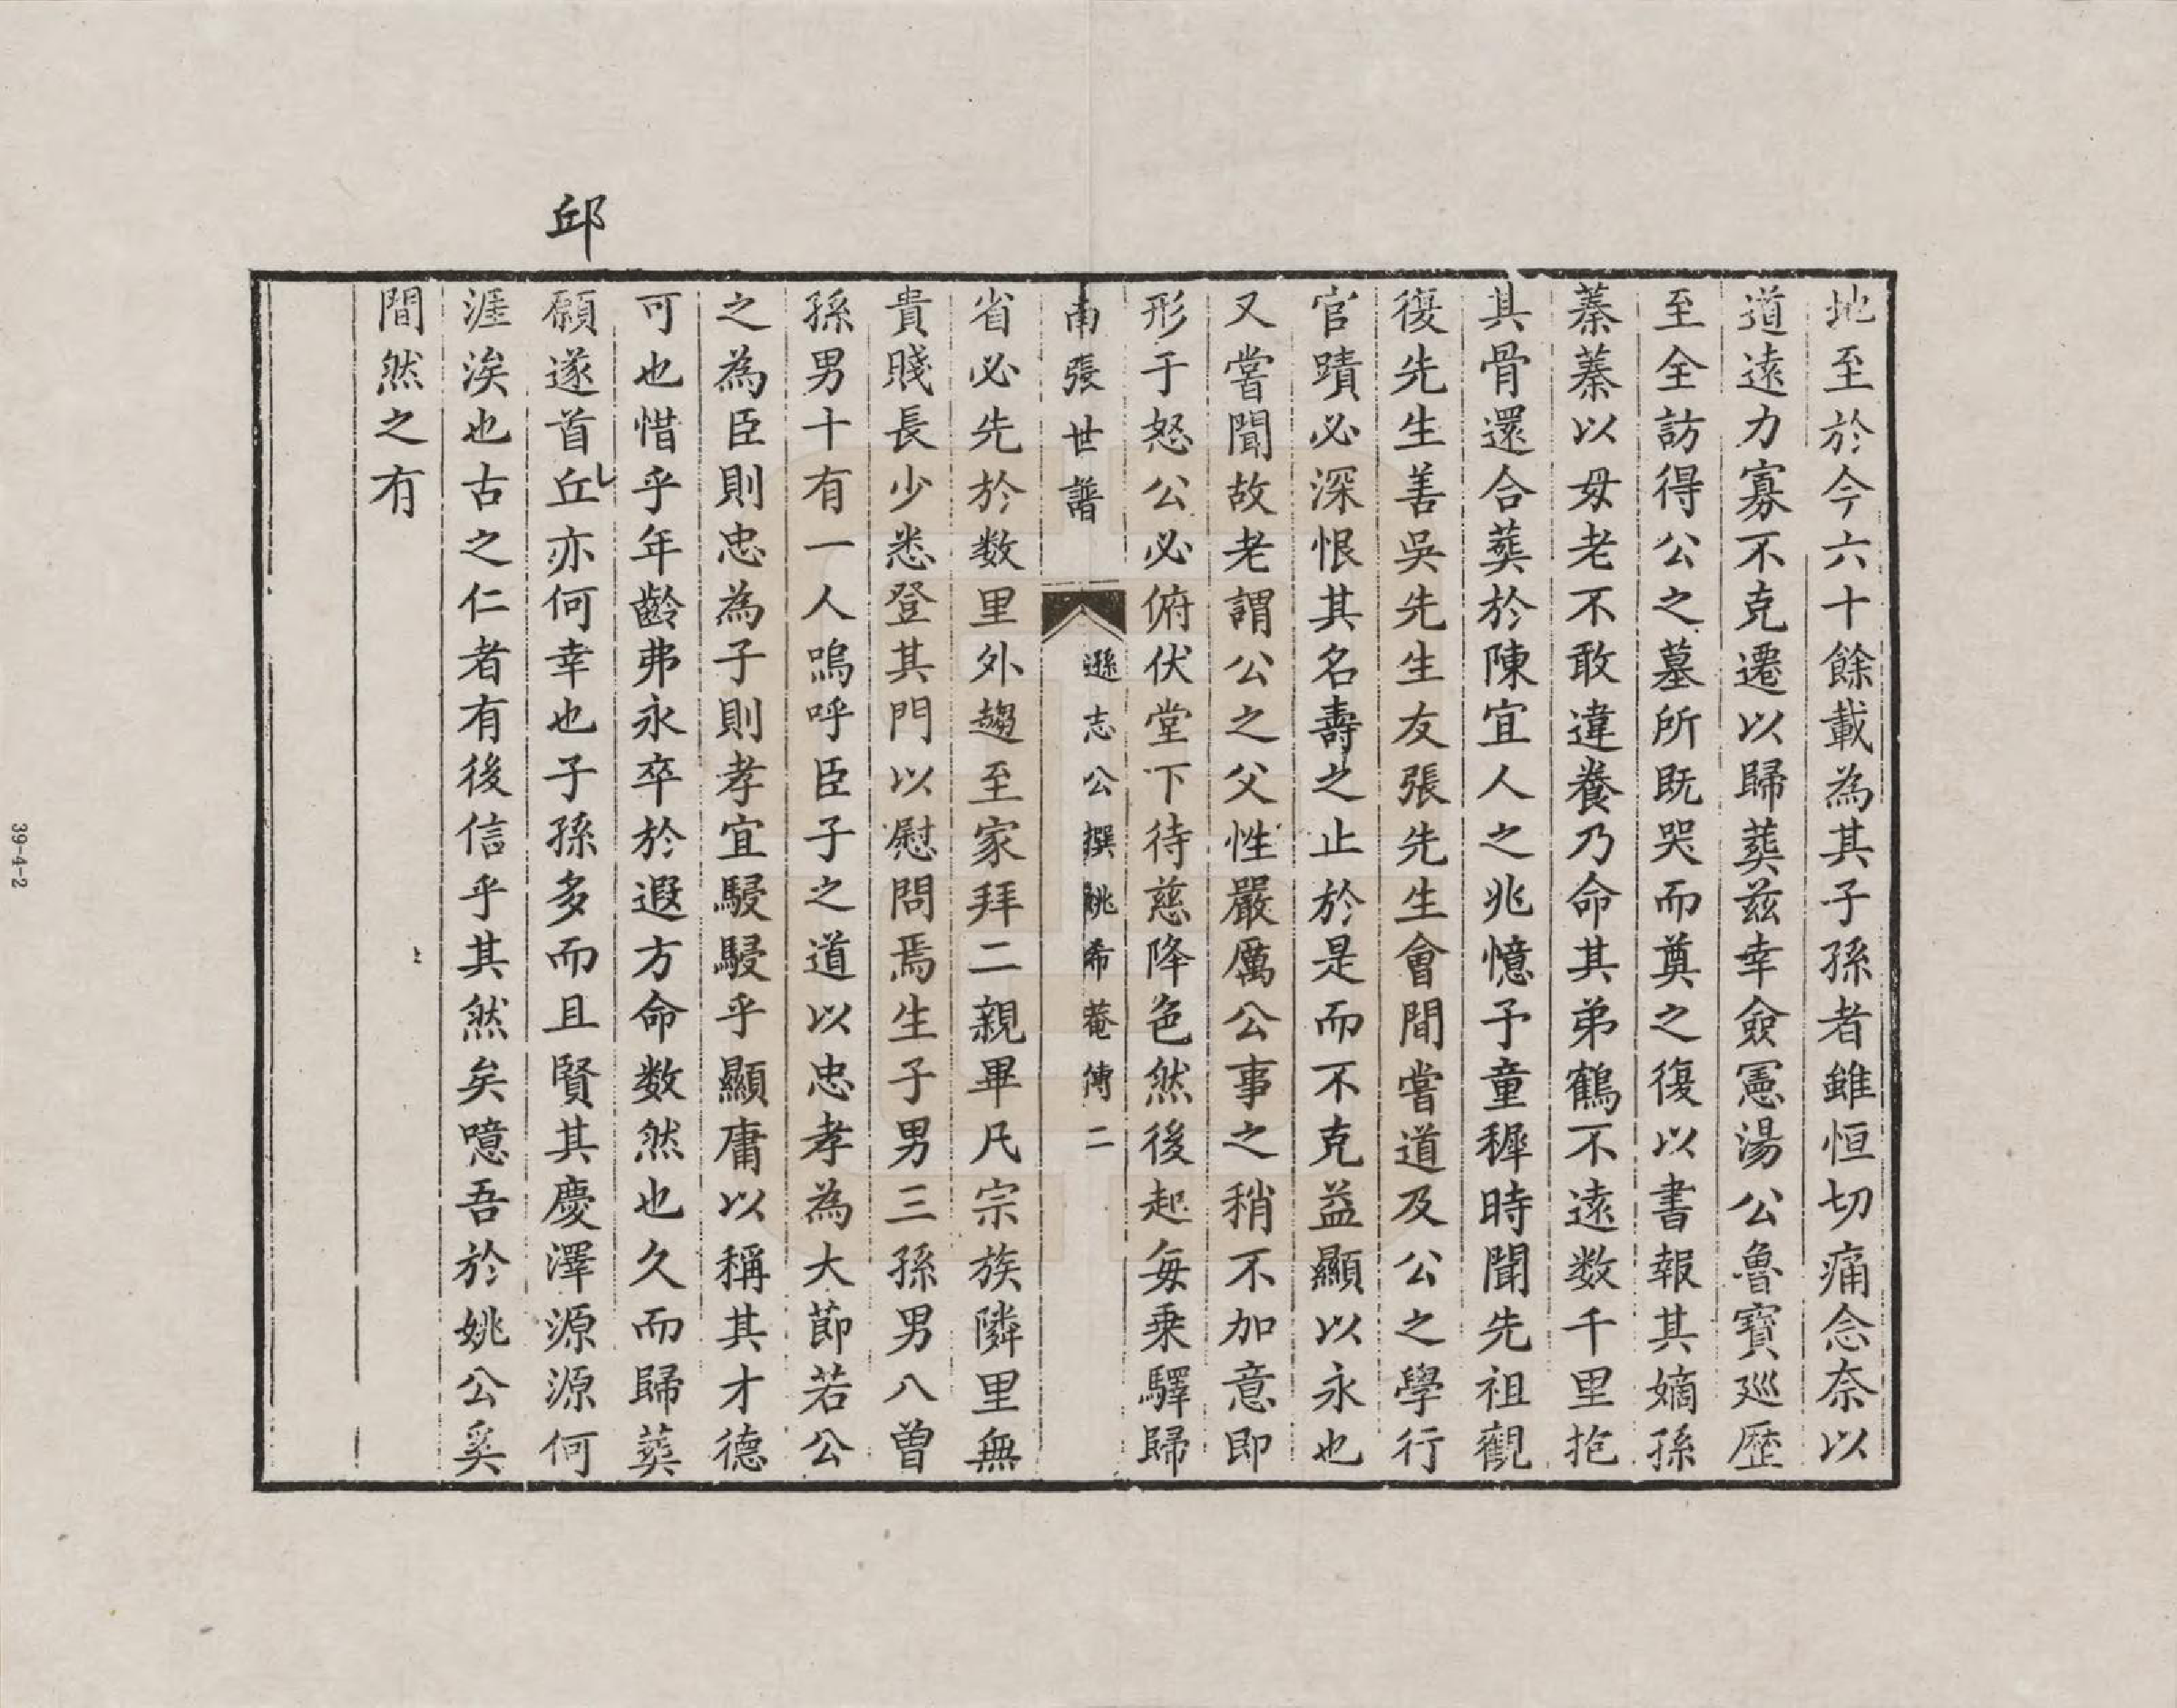 地至於今六十餘載為其子孫者雖恒切痛念奈以
道遠力寡不克遷以歸葬茲幸僉憲湯公魯寶巡歷
至全訪得公之墓所既哭而奠之復以書報其嫡孫
蓁蓁以毋老不敢違養乃命其弟鶴不遠数千里抱
其骨還合葬於陳宜人之兆憶予童穉時聞先祖觀
復先生善吳先生友張先生會間嘗道及公之學行
官蹟必深恨其名壽之止於是而不克益顯以永也
又嘗聞故老謂公之父性嚴厲公事之稍不加意即
形于怒公必俯伏堂下待慈降色然後起每乘驛歸
南張世譜 遜志公撰姚希菴傳二
省必先於数里外趨至家拜二親畢凡宗族隣里無
貴賤長少悉登其門以慰問焉生子男三孫男八曾
孫男十有一人嗚呼臣子之道以忠孝為大節若公
之為臣則忠為子則孝宜駸駸乎顯庸以稱其才德
可也惜乎年齡弗永卒於遐方命数然也久而歸葬
邱
願遂首丘亦何幸也子孫多而且賢其慶澤源源何
涯涘也古之仁者有後信乎其然矣噫吾於姚公奚
間然之有
39-4-2